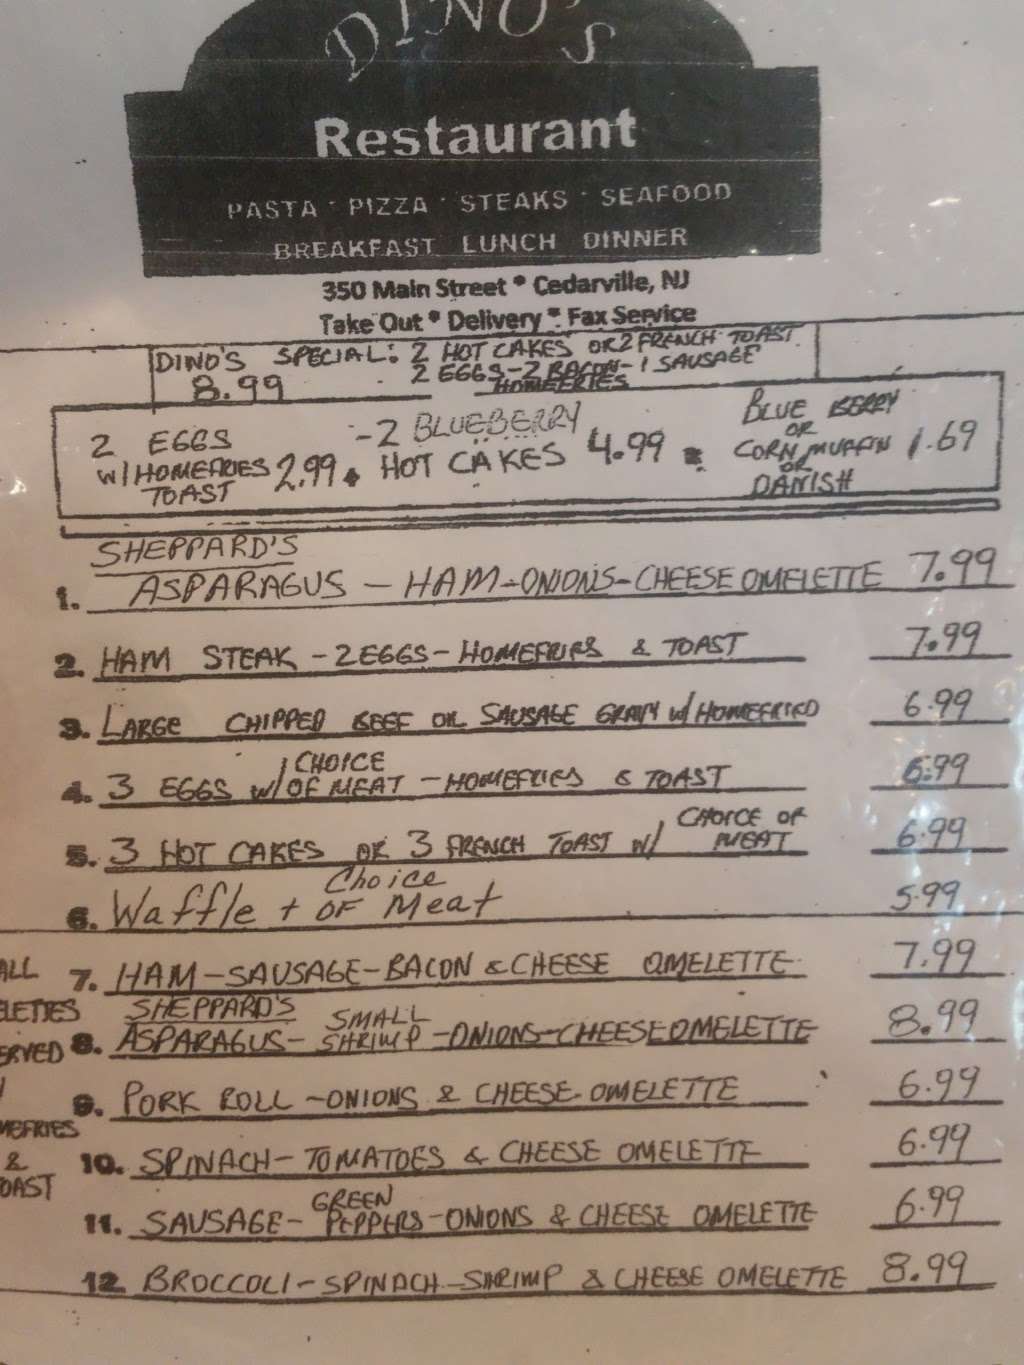 DINO'S
Restaurant
PASTA · PIZZA · STEAKS · SEAFOOD
BREAKFAST LUNCH DINNER
350 Main Street * Cedarville, NJ
Take Out * Delivery * Fax Service
DINO'S SPECIAL: 2 HOT CAKES OR 2 FRENCH TOAST
8.99 2 EGGS-2 BACON-1 SAUSAGE
HOMEFRIES
2 EGGS
W/HOMEFRIES 2.99
TOAST
-2 BLUEBERRY
HOT CAKES 4.99
BLUE BERRY
OR
CORN MUFFIN 1.69
OR
DANISH
SHEPPARD'S
1. ASPARAGUS - HAM-ONIONS-CHEESE OMELETTE 7.99
2. HAM STEAK - 2 EGGS - HOMEFRIES & TOAST 7.99
3. LARGE CHIPPED BEEF OR SAUSAGE GRAVY W/ HOMEFRIED 6.99
CHOICE
4. 3 EGGS W/ OF MEAT - HOMEFRIES & TOAST 6.99
CHOICE OF
5. 3 HOT CAKES OR 3 FRENCH TOAST W/ MEAT 6.99
Choice
6. Waffle + OF Meat 5.99
7. HAM-SAUSAGE-BACON & CHEESE OMELETTE 7.99
SHEPPARD'S SMALL
8. ASPARAGUS- SHRIMP -ONIONS-CHEESE OMELETTE 8.99
9. PORK ROLL -ONIONS & CHEESE OMELETTE 6.99
10. SPINACH- TOMATOES & CHEESE OMELETTE 6.99
GREEN
11. SAUSAGE- PEPPERS-ONIONS & CHEESE OMELETTE 6.99
12 BROCCOLI-SPINACH-SHRIMP & CHEESE OMELETTE 8.99
ALL
ELETTES
ERVED
MEFRIES
&
OAST